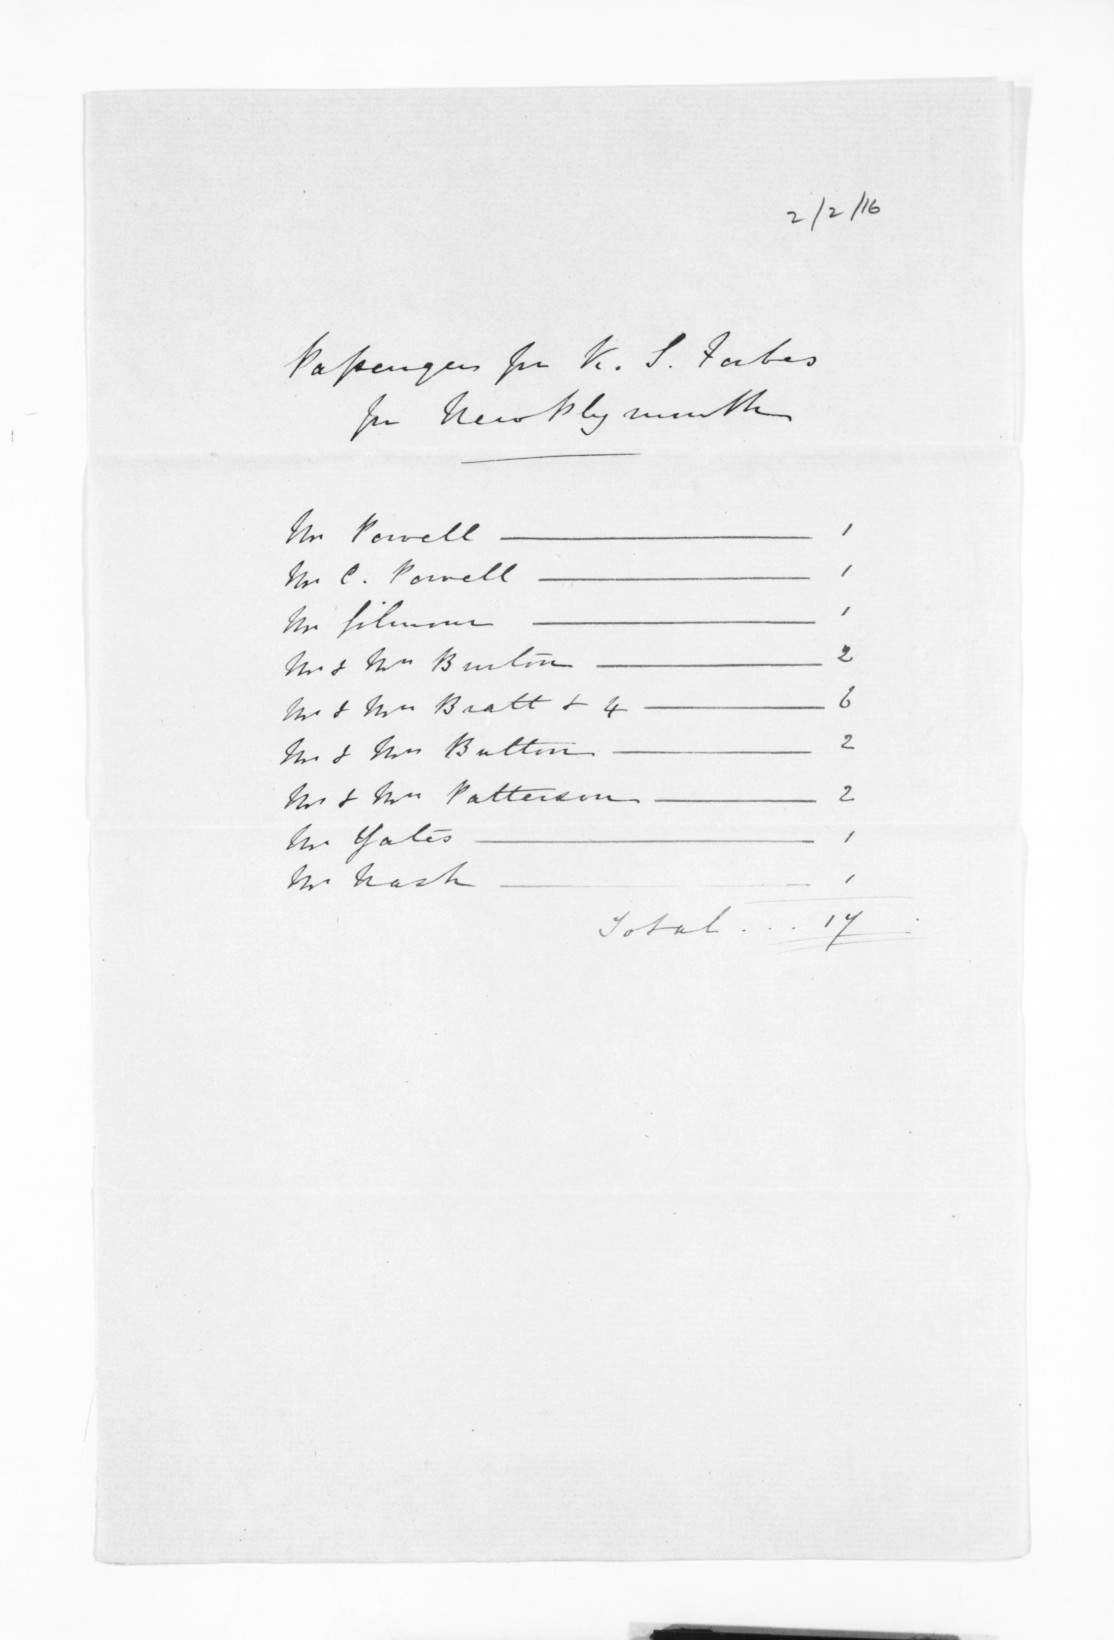 2/2/16
Passengers per K. S. Forbes
for New Plymouth
Mr Powell 1
Mr C. Powell 1
Mr Gilmour 1
Mr & Mrs Burton 2
Mr & Mrs Bratt & 4 6
Mr & Mrs Batten 2
Mr & Mrs Patterson 2
Mr Yates 1
Mr Nash 1
Total ... 17